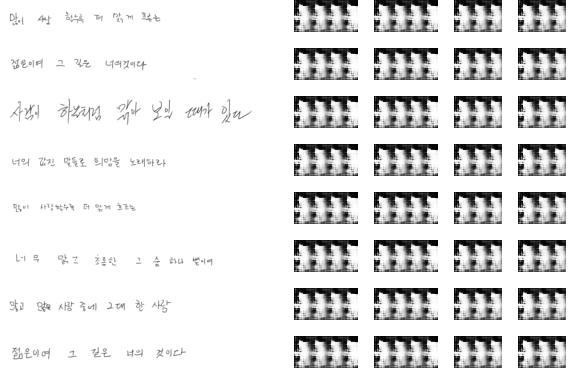 많이 사랑 할수록 더 맑게 흐르는
젊은이여 그 길은 너의것이다
사람이 하늘처럼 맑아 보일 때가 있다
너의 값진 말들로 희망을 노래하라
많이 사랑할수록 더 맑게 흐르는
너무 맑고 초롱한 그 중 하나 별이여
많고 많은 사람 중에 그대 한 사람
젊은이여 그 길은 너의 것이다